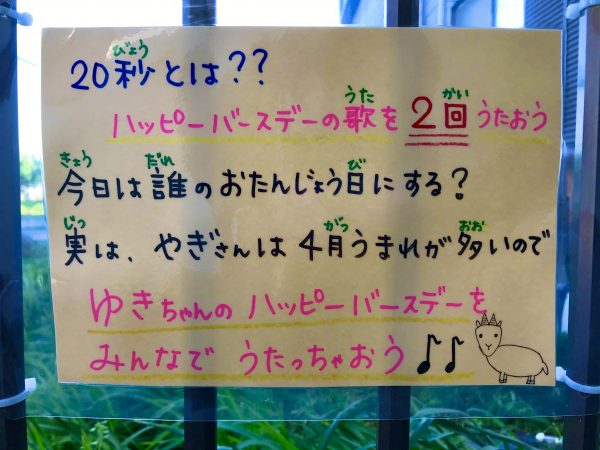 20秒とは？？
びょう
ハッピーバースデーの歌を2回うたおう
うた かい
今日は誰のおたんじょう日にする？
きょう だれ び
実は、やぎさんは4月うまれが多いので
じつ がつ おお
ゆきちゃんのハッピーバースデーを
みんなでうたっちゃおう♪♪